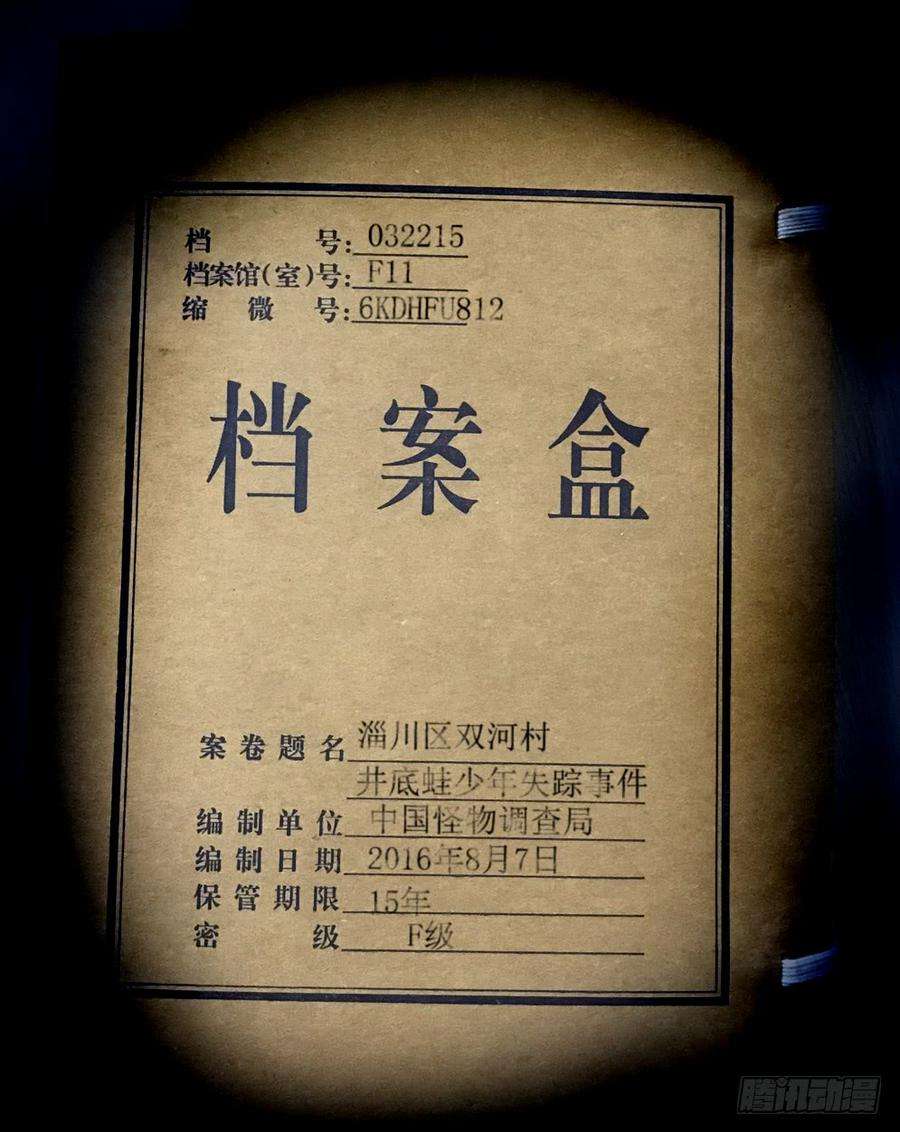 档 号: 032215
档案馆(室)号: F11
缩 微 号: 6KDHFU812
档案盒
案卷题名 淄川区双河村
井底蛙少年失踪事件
编制单位 中国怪物调查局
编制日期 2016年8月7日
保管期限 15年
密 级 F级
腾讯动漫